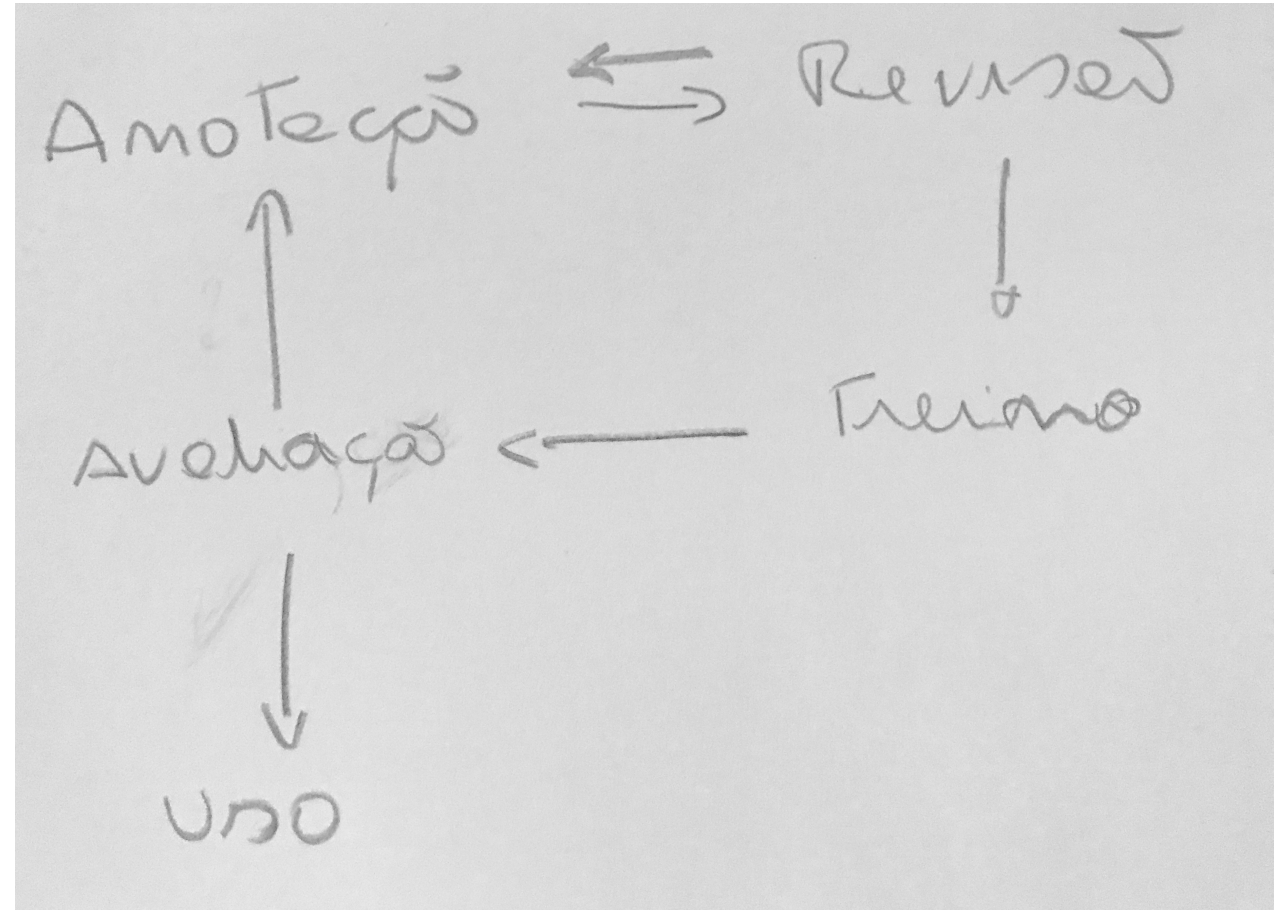 Anotação
Revisão
Treino
Avaliação
Uso